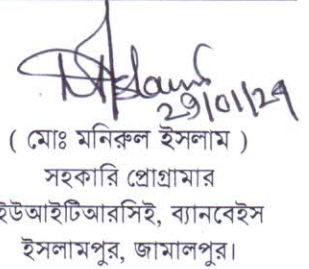 29/01/24
( মোঃ মনিরুল ইসলাম )
সহকারি প্রোগ্রামার
ইউআইটিআরসিই, ব্যানবেইস
ইসলামপুর, জামালপুর।